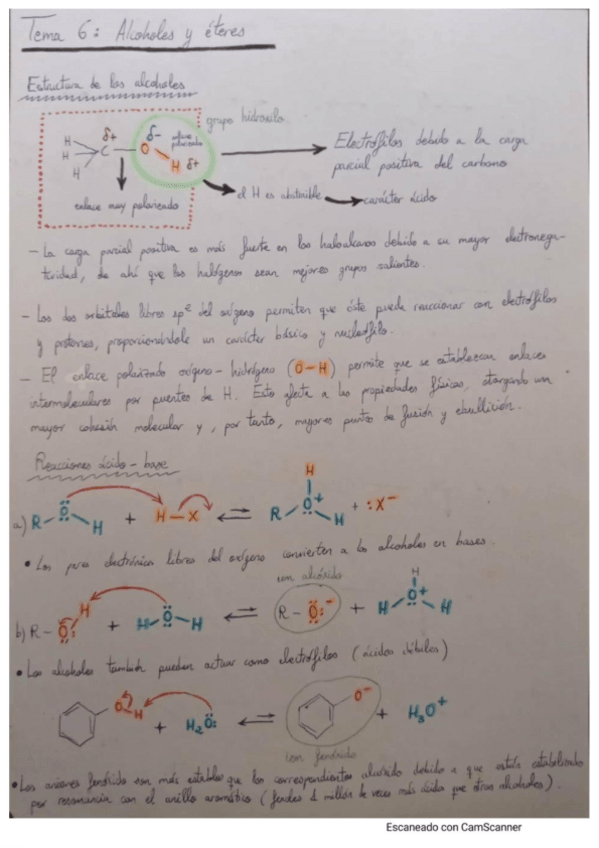 Tema 6: Alcoholes y éteres
Estructura de los alcoholes
grupo hidroxilo
δ+ δ- enlace polarizado
H
H C O
H H δ+
enlace muy polarizado
Electrófilos debido a la carga
parcial positiva del carbono
el H es abstraíble carácter ácido
- La carga parcial positiva es más fuerte en los haloalcanos debido a su mayor electronega-
tividad, de ahí que los halógenos sean mejores grupos salientes.
- Los dos orbitales libres sp² del oxígeno permiten que éste pueda reaccionar con electrófilos
y protones, proporcionándole un carácter básico y nucleófilo.
- El enlace polarizado oxígeno-hidrógeno (O-H) permite que se establezcan enlaces
intermoleculares por puentes de H. Esto afecta a las propiedades físicas, otorgando una
mayor cohesión molecular y, por tanto, mayores puntos de fusión y ebullición.
Reacciones ácido-base
H
a) R-O H + H-X ⇌ R O+ H + :X-
• Los pares electrónicos libres del oxígeno convierten a los alcoholes en bases.
ion alcóxido
H H
b) R-O: + H-O-H ⇌ R-O:- + H-O+ H
• Los alcoholes también pueden actuar como electrófilos (ácidos débiles)
O-H + H2O: ⇌ O- + H3O+
ion fenóxido
• Los aniones fenóxido son más estables que los correspondientes alcóxido debido a que están estabilizados
por resonancia con el anillo aromático (fenoles 1 millón de veces más ácidos que otros alcoholes).
Escaneado con CamScanner